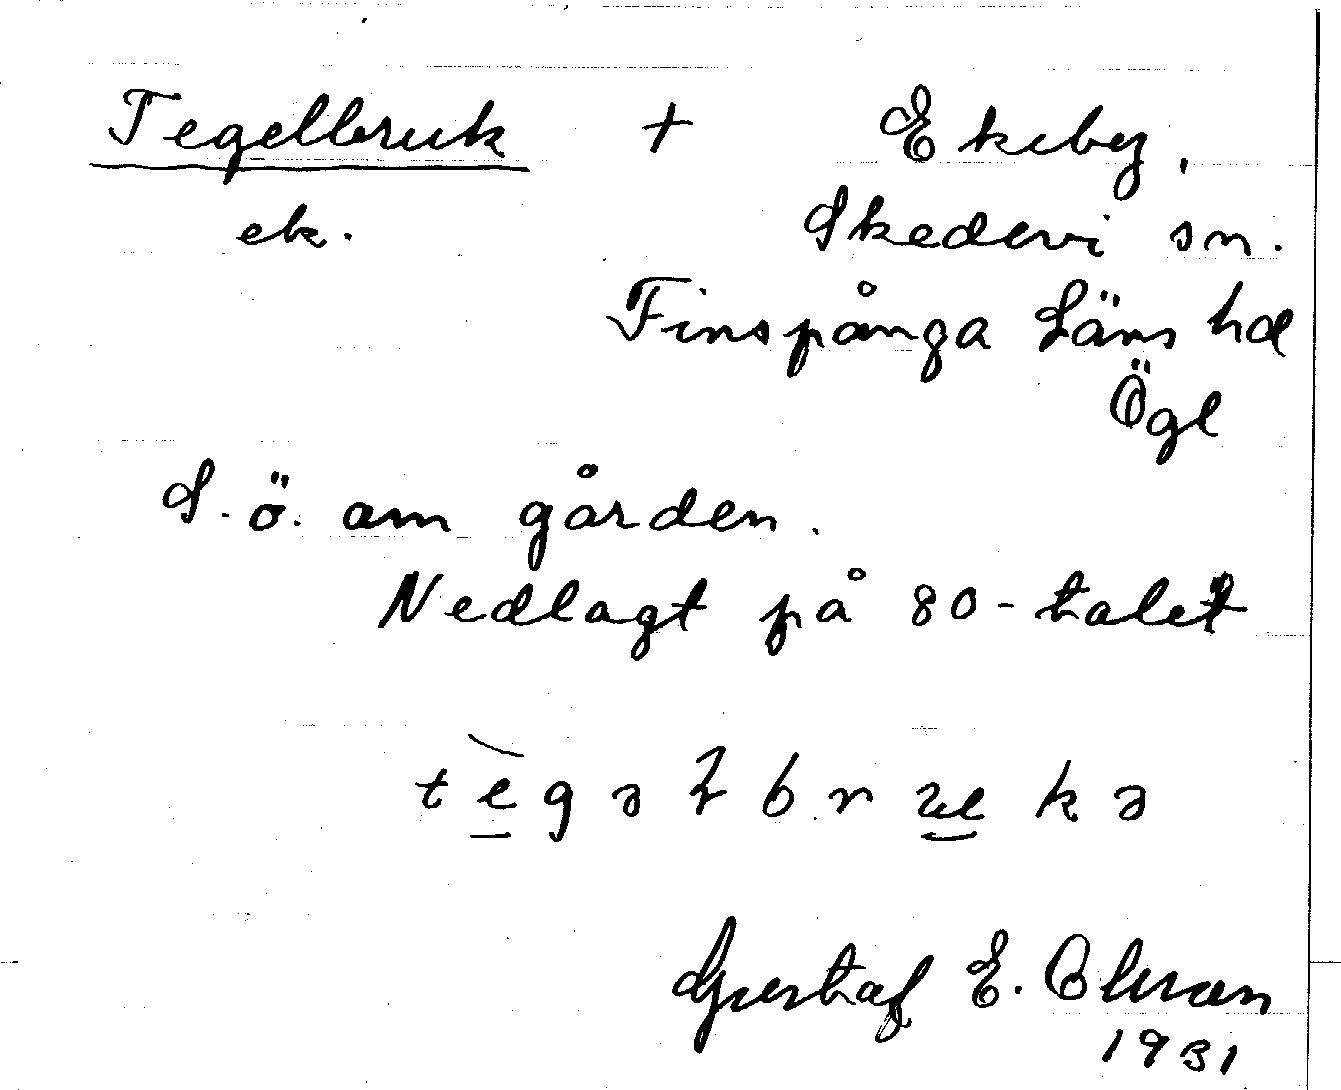 Tegelbruk + Ekeby,
ek. Skedevi sn.
Finspånga Läns hd
Ögl
S.ö. om gården.
Nedlagt på 80-talet
Gustaf E.
1931